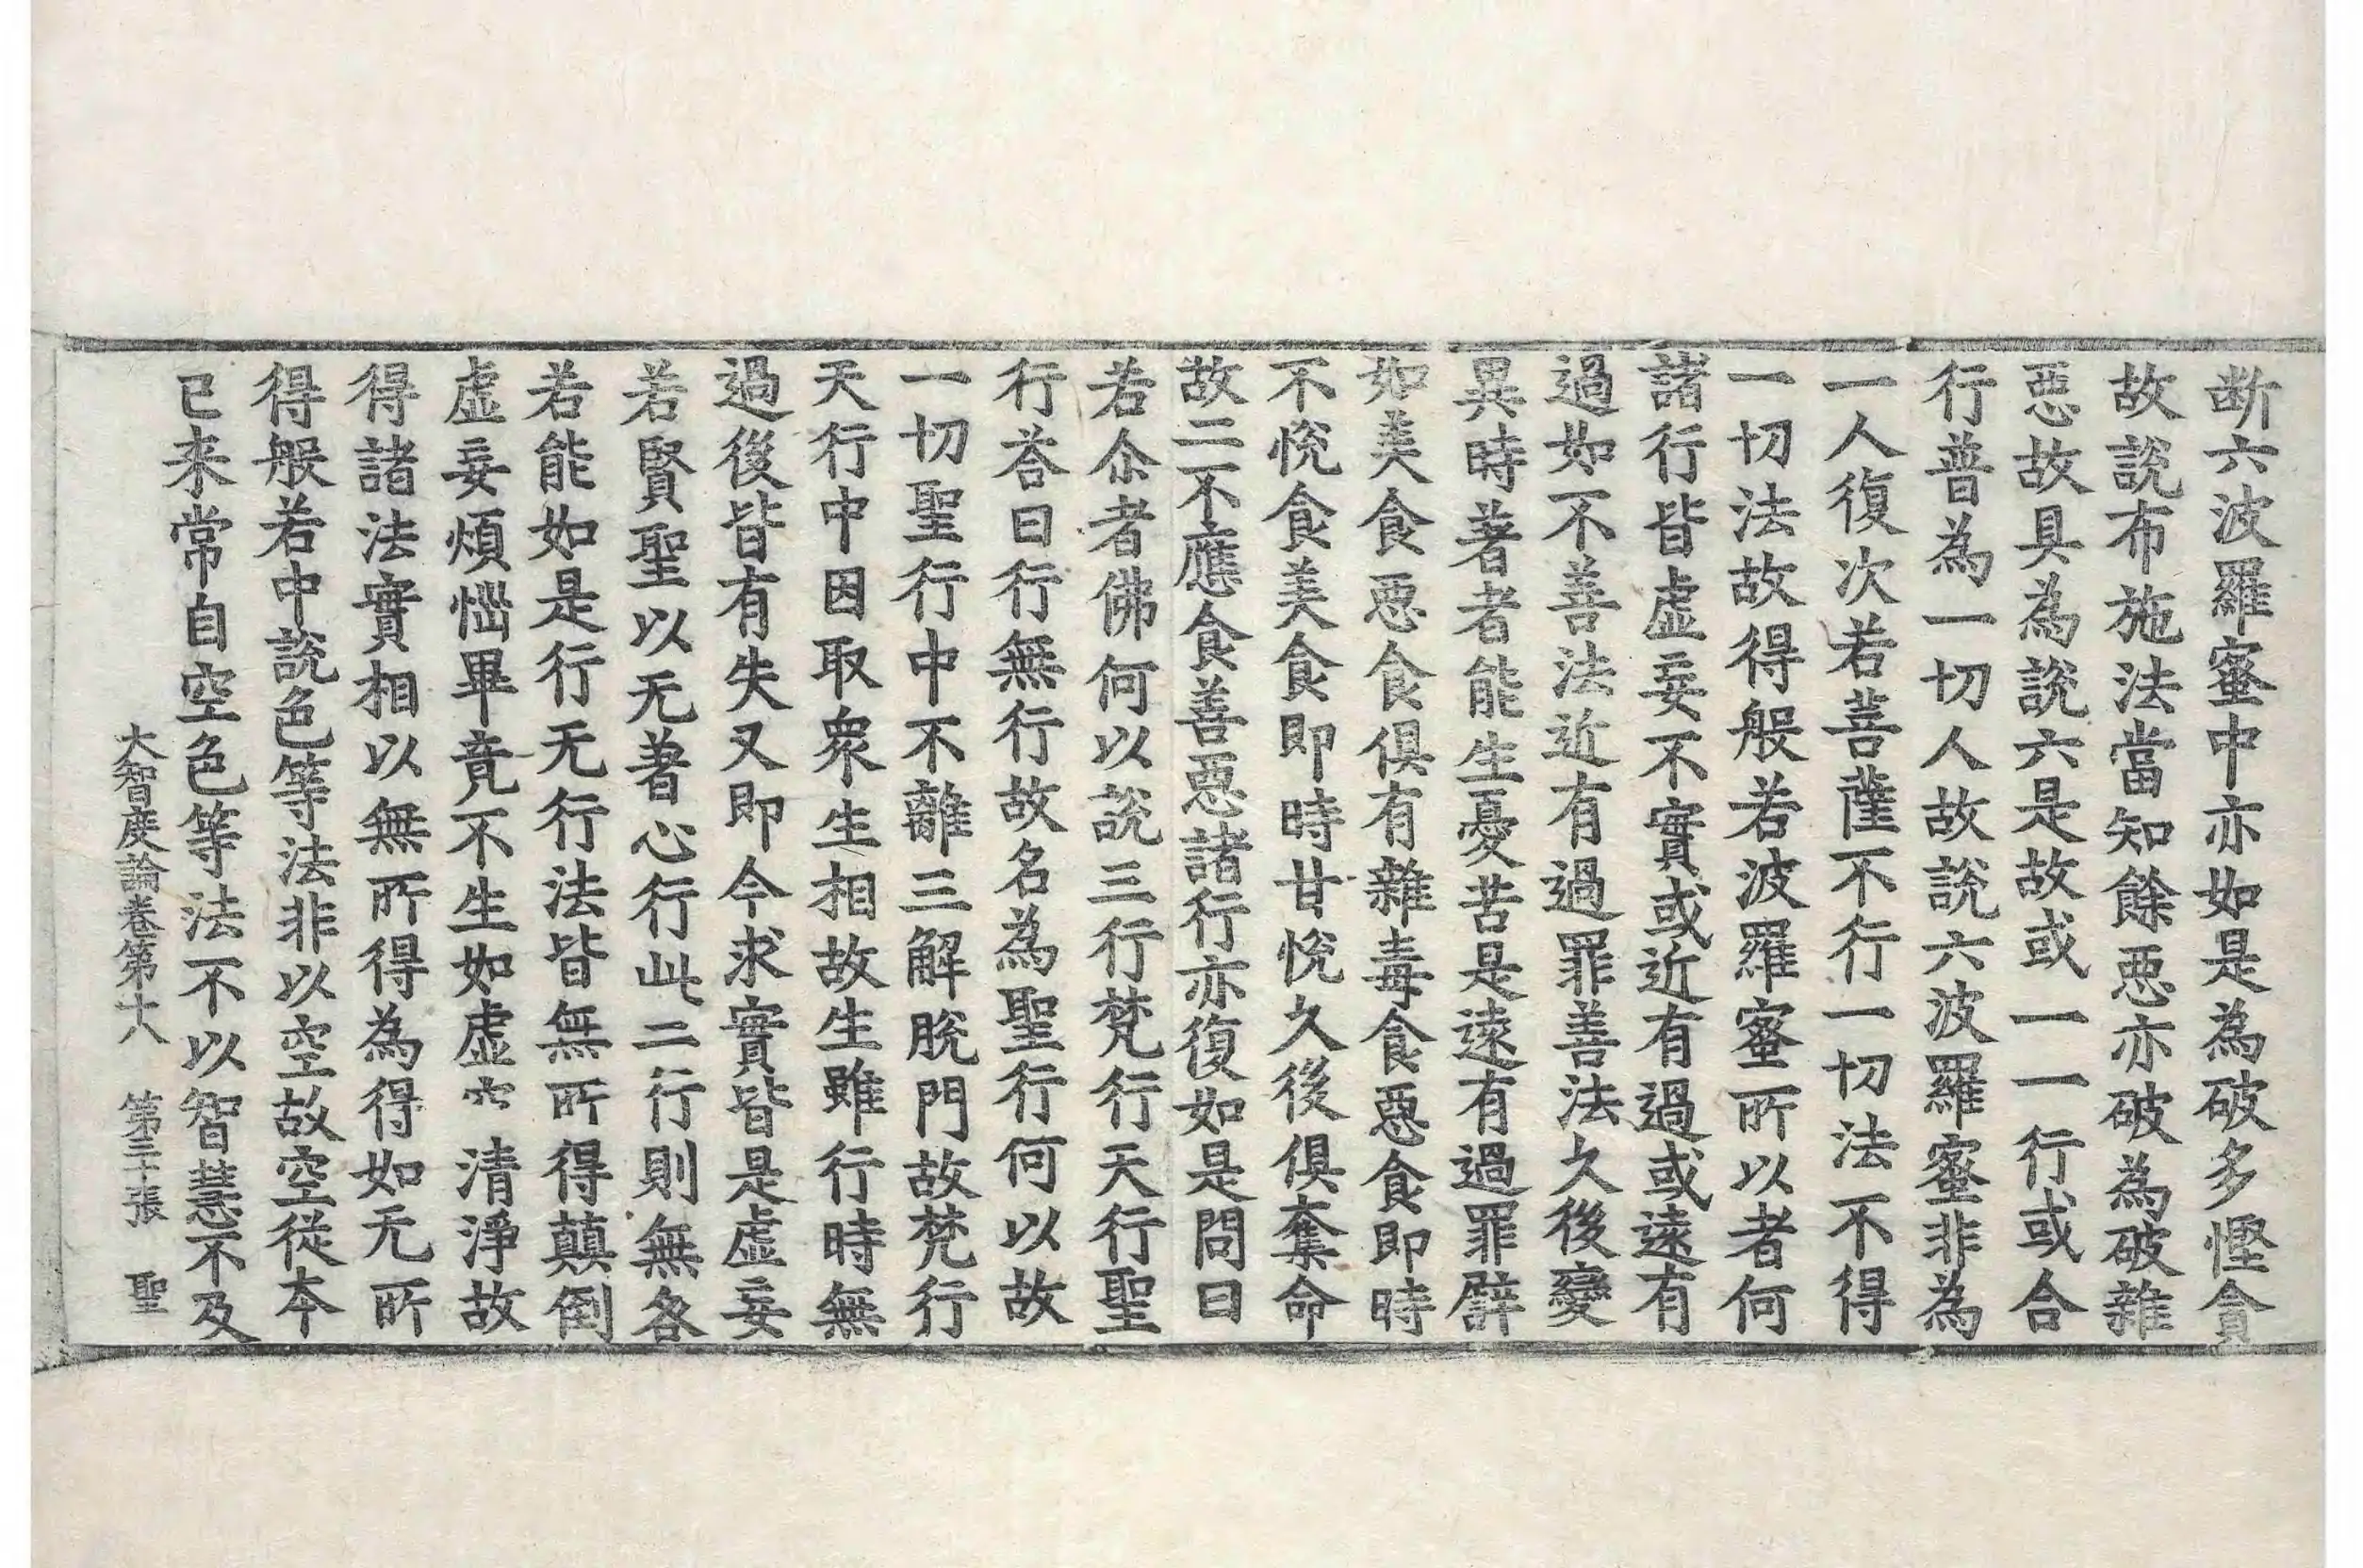 断六波羅蜜中亦如是為破多慳貪
故說布施法當知餘惡亦破為破雜
惡故具為說六是故或一一行或合
行普為一切人故說六波羅蜜非為
一人復次若菩薩不行一切法不得
一切法故得般若波羅蜜所以者何
諸行皆虛妄不實或近有過或遠有
過如不善法近有過罪善法久後變
異時著者能生憂苦是遠有過罪譬
如美食惡食俱有雜毒食惡食即時
不悅食美食即時甘悅久後俱奪命
故二不應食善惡諸行亦復如是問曰
若尒者佛何以說三行梵行天行聖
行荅曰行無行故名為聖行何以故
一切聖行中不離三解脫門故梵行
天行中因取眾生相故生雖行時無
過後皆有失又即今求實皆是虛妄
若賢聖以无著心行此二行則無咎
若能如是行无行法皆無所得顛倒
虛妄煩惱畢竟不生如虛 清淨故
得諸法實相以無所得為得如无所
得般若中說色等法非以空故空從本
已来常自空色等法不以智慧不及
大智度論卷第十八 第三十張 聖